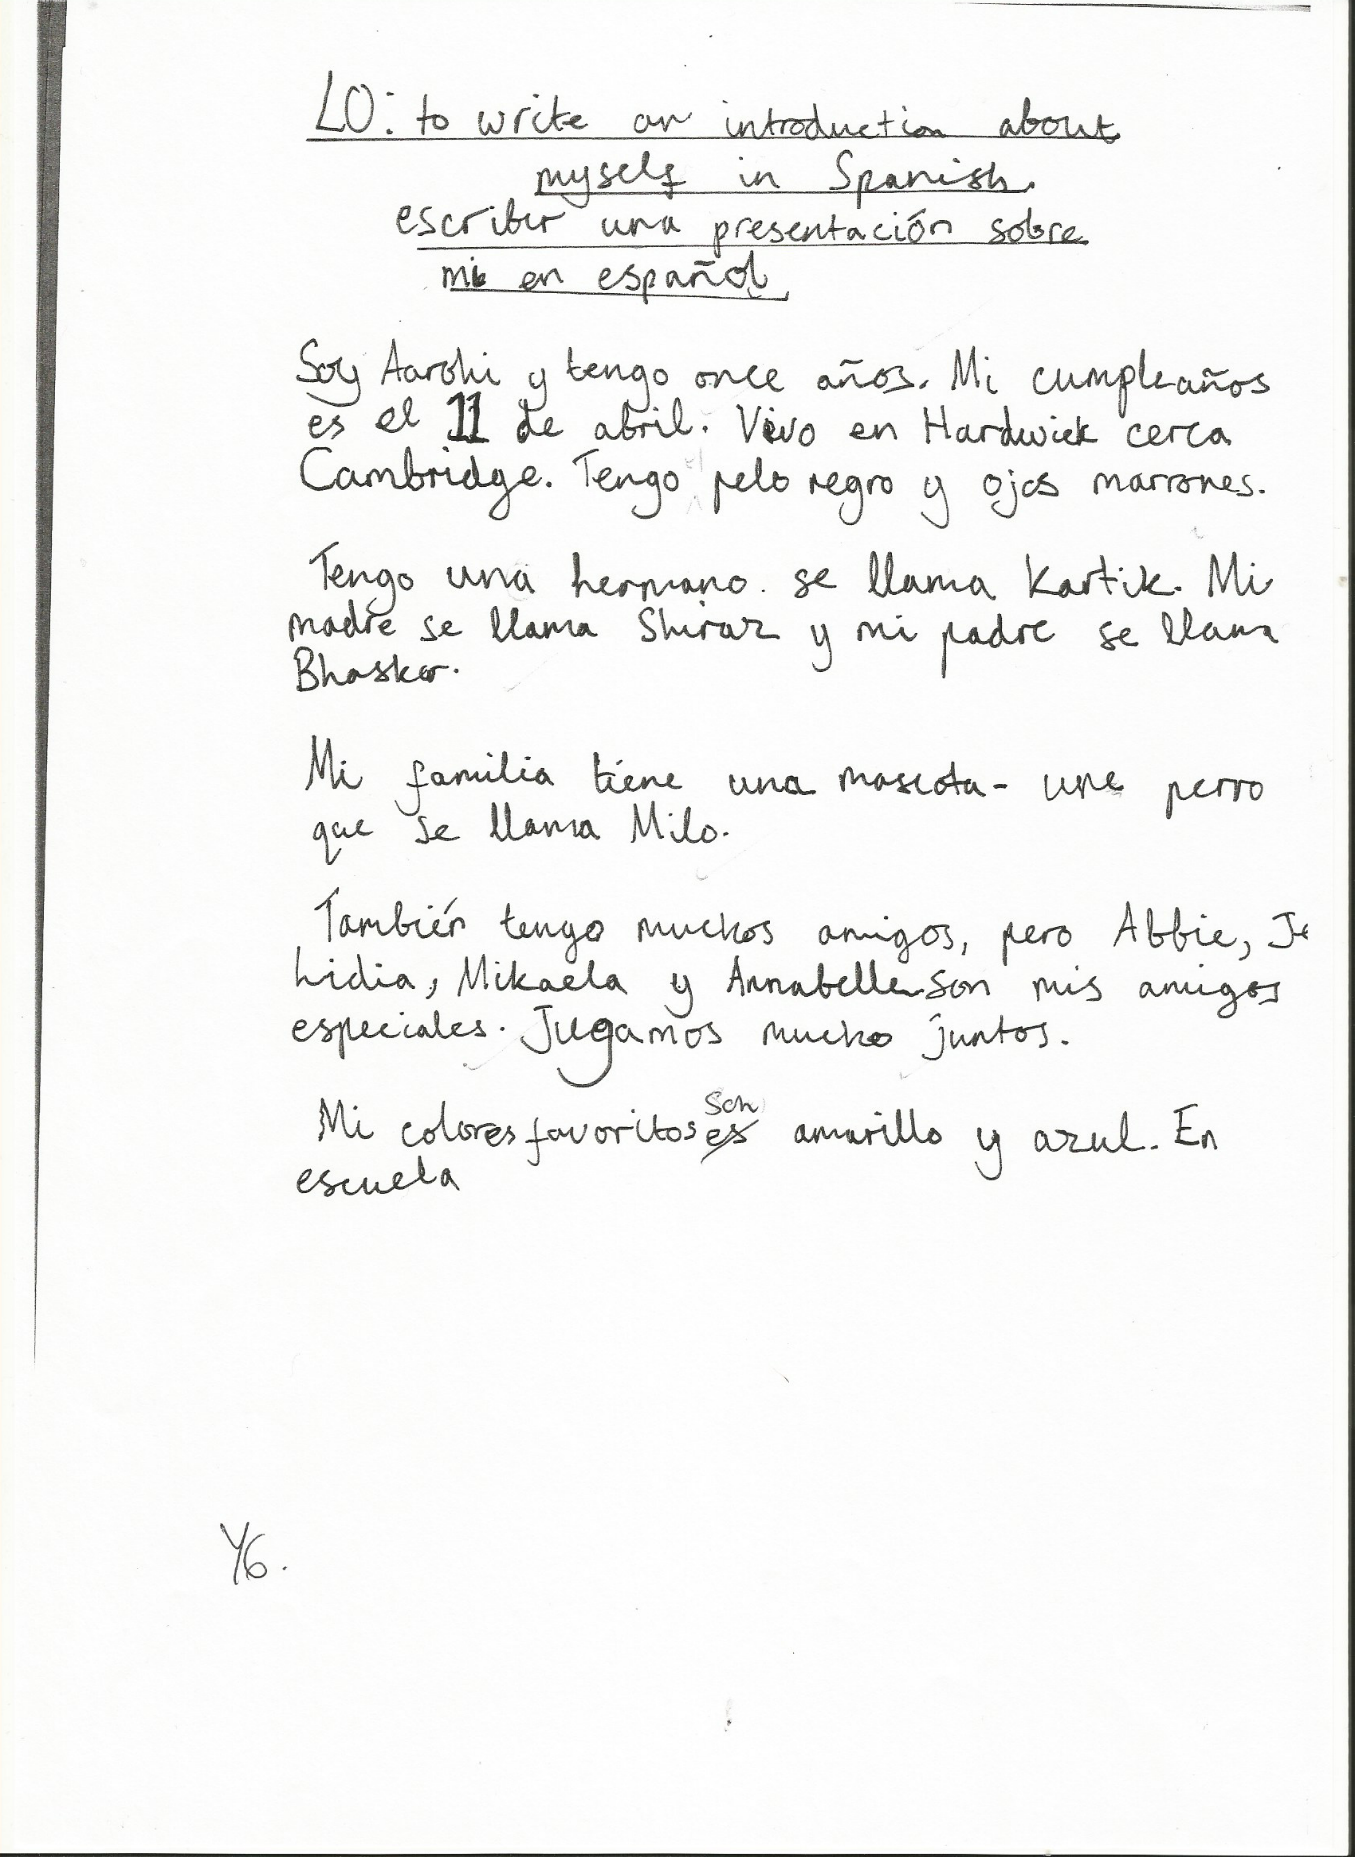 LO: to write an introduction about
myself in Spanish.
escribir una presentación sobre
mi en español.
Soy Aarohi y tengo once años. Mi cumpleaños
es el 11 de abril. Vivo en Hardwick cerca
Cambridge. Tengo el pelo negro y ojos marrones.
Tengo una hermano. se llama Kartik. Mi
madre se llama Shiraz y mi padre se llama
Bhaskar.
Mi familia tiene una mascota - une perro
que se llama Milo.
También tengo muchos amigos, pero Abbie,
Lidia, Mikaela y Annabelle son mis amigos
especiales. Jugamos mucho juntos.
Mi colores favoritos es son amarillo y azul. En
escuela
Y6.